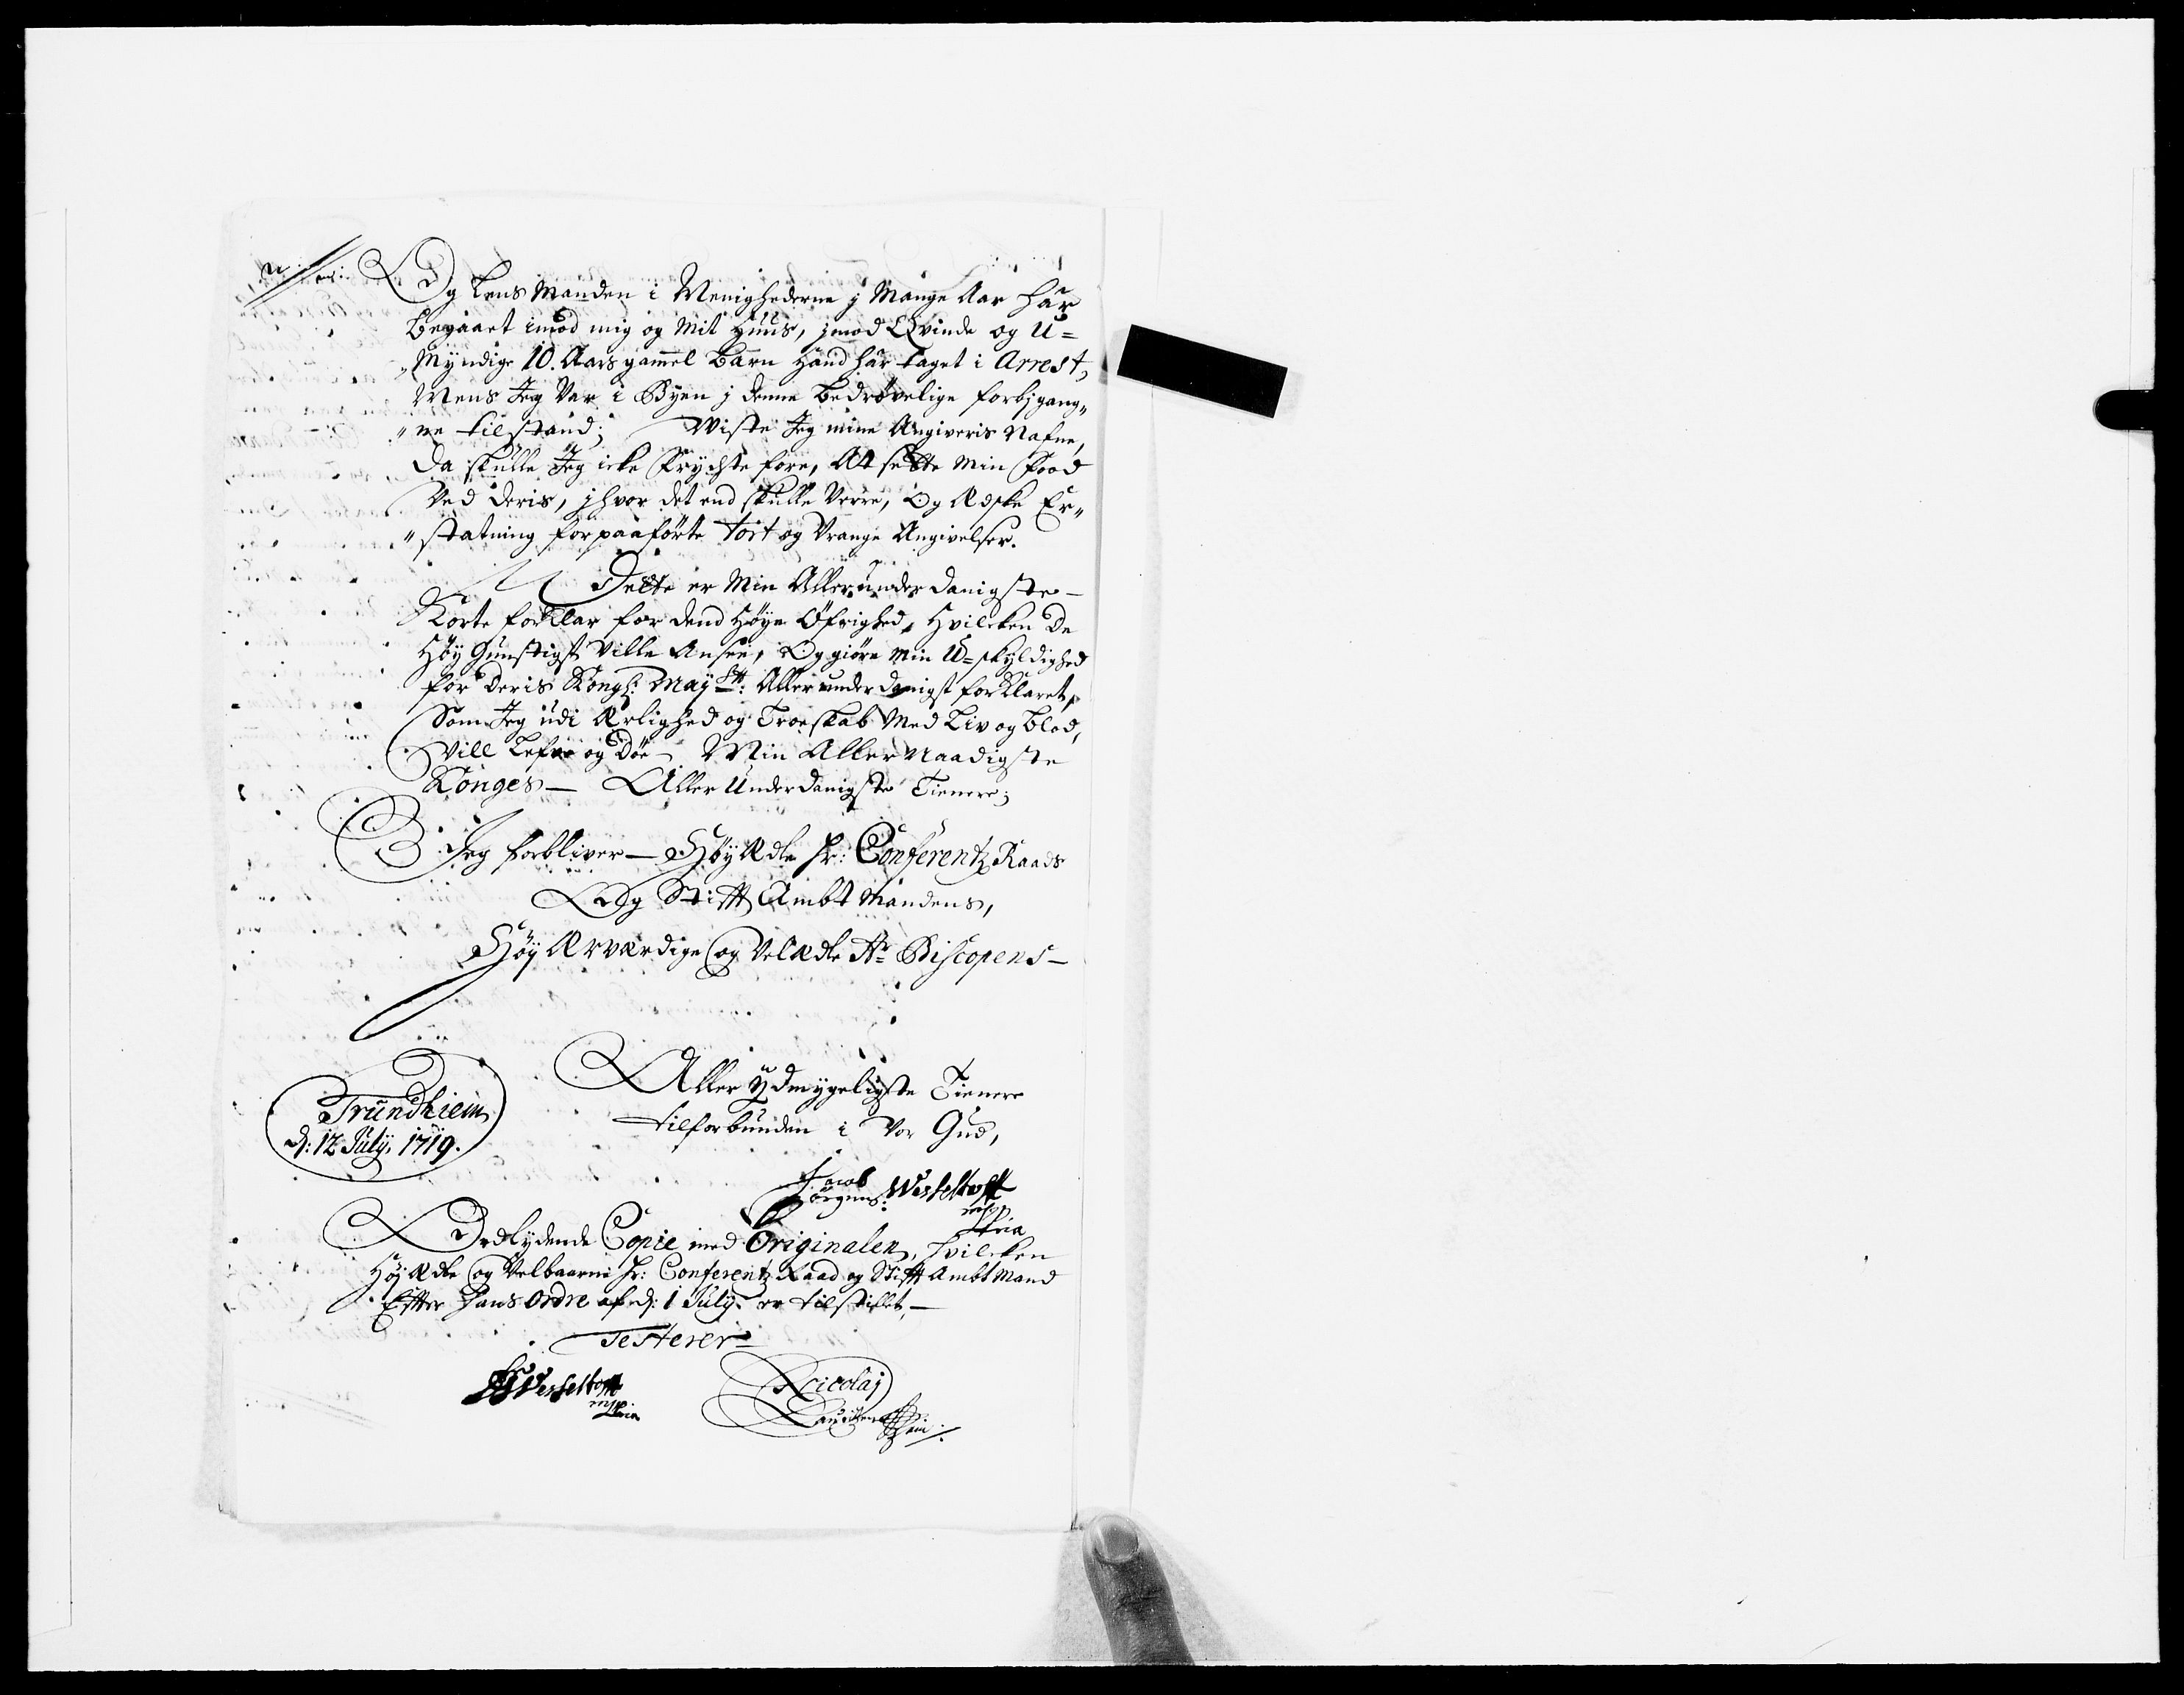 Og Lens Manden i Menighederne j Mange Aar har
begaaet imod mig og Mit Huus, jmod Qvinde og U=
„Myndige 10. Aars gamel Barn hand har taget i Arrest,
Mens Jeg Var i Byen j denne bedrøvelige forbjgang„
„ne tilstand; Wiste Jeg mine Angiveris Nafne,
da skulle Jeg icke Frychte fore, At sætte Min Food
Ved deris, jhvor det end skulle Verre, Og Ædske Er„
„statning for paaførte tort og Vrange Angivelser.
Dette er Min Allerunderdanigste
Korte forklar for dend Høye Øfrighed, Hvilcken De
Høy Gunstigst Ville Ansee, Og giøre Min U=skyldighed
for Deris Kongl: Maystt: Allerunderdanigst forklaret,
Som Jeg udi Ærlighed og Troeskab Med Liv og blod,
Vill Lefve og Døe Min Aller Naadigste
Konges — Aller Underdanigste Tienere;
Jeg forbliver — HøyÆdle Hr: Conferentz Raads
Og Stifft Ambt Mandens,
Høy Ærværdige og VelÆdle Hr Biscopens —
Aller Ydmygeligste Tienere
tilforbunden i Vor Gud,
Trundhiem
d: 12 July. 1719.
Jacob
Jørgens: Wesseltofft
mpp
pria
Ordlydende Copie med Originalen, hvilcken
HøyÆdle og Velbaarne Hr: Conferentz Raad og Stifft Ambt Mand
Efter Hans Ordre af d: 1 July. er tilstillet, —
Testerer
Wesseltofft
mp
pria
Nicolaj